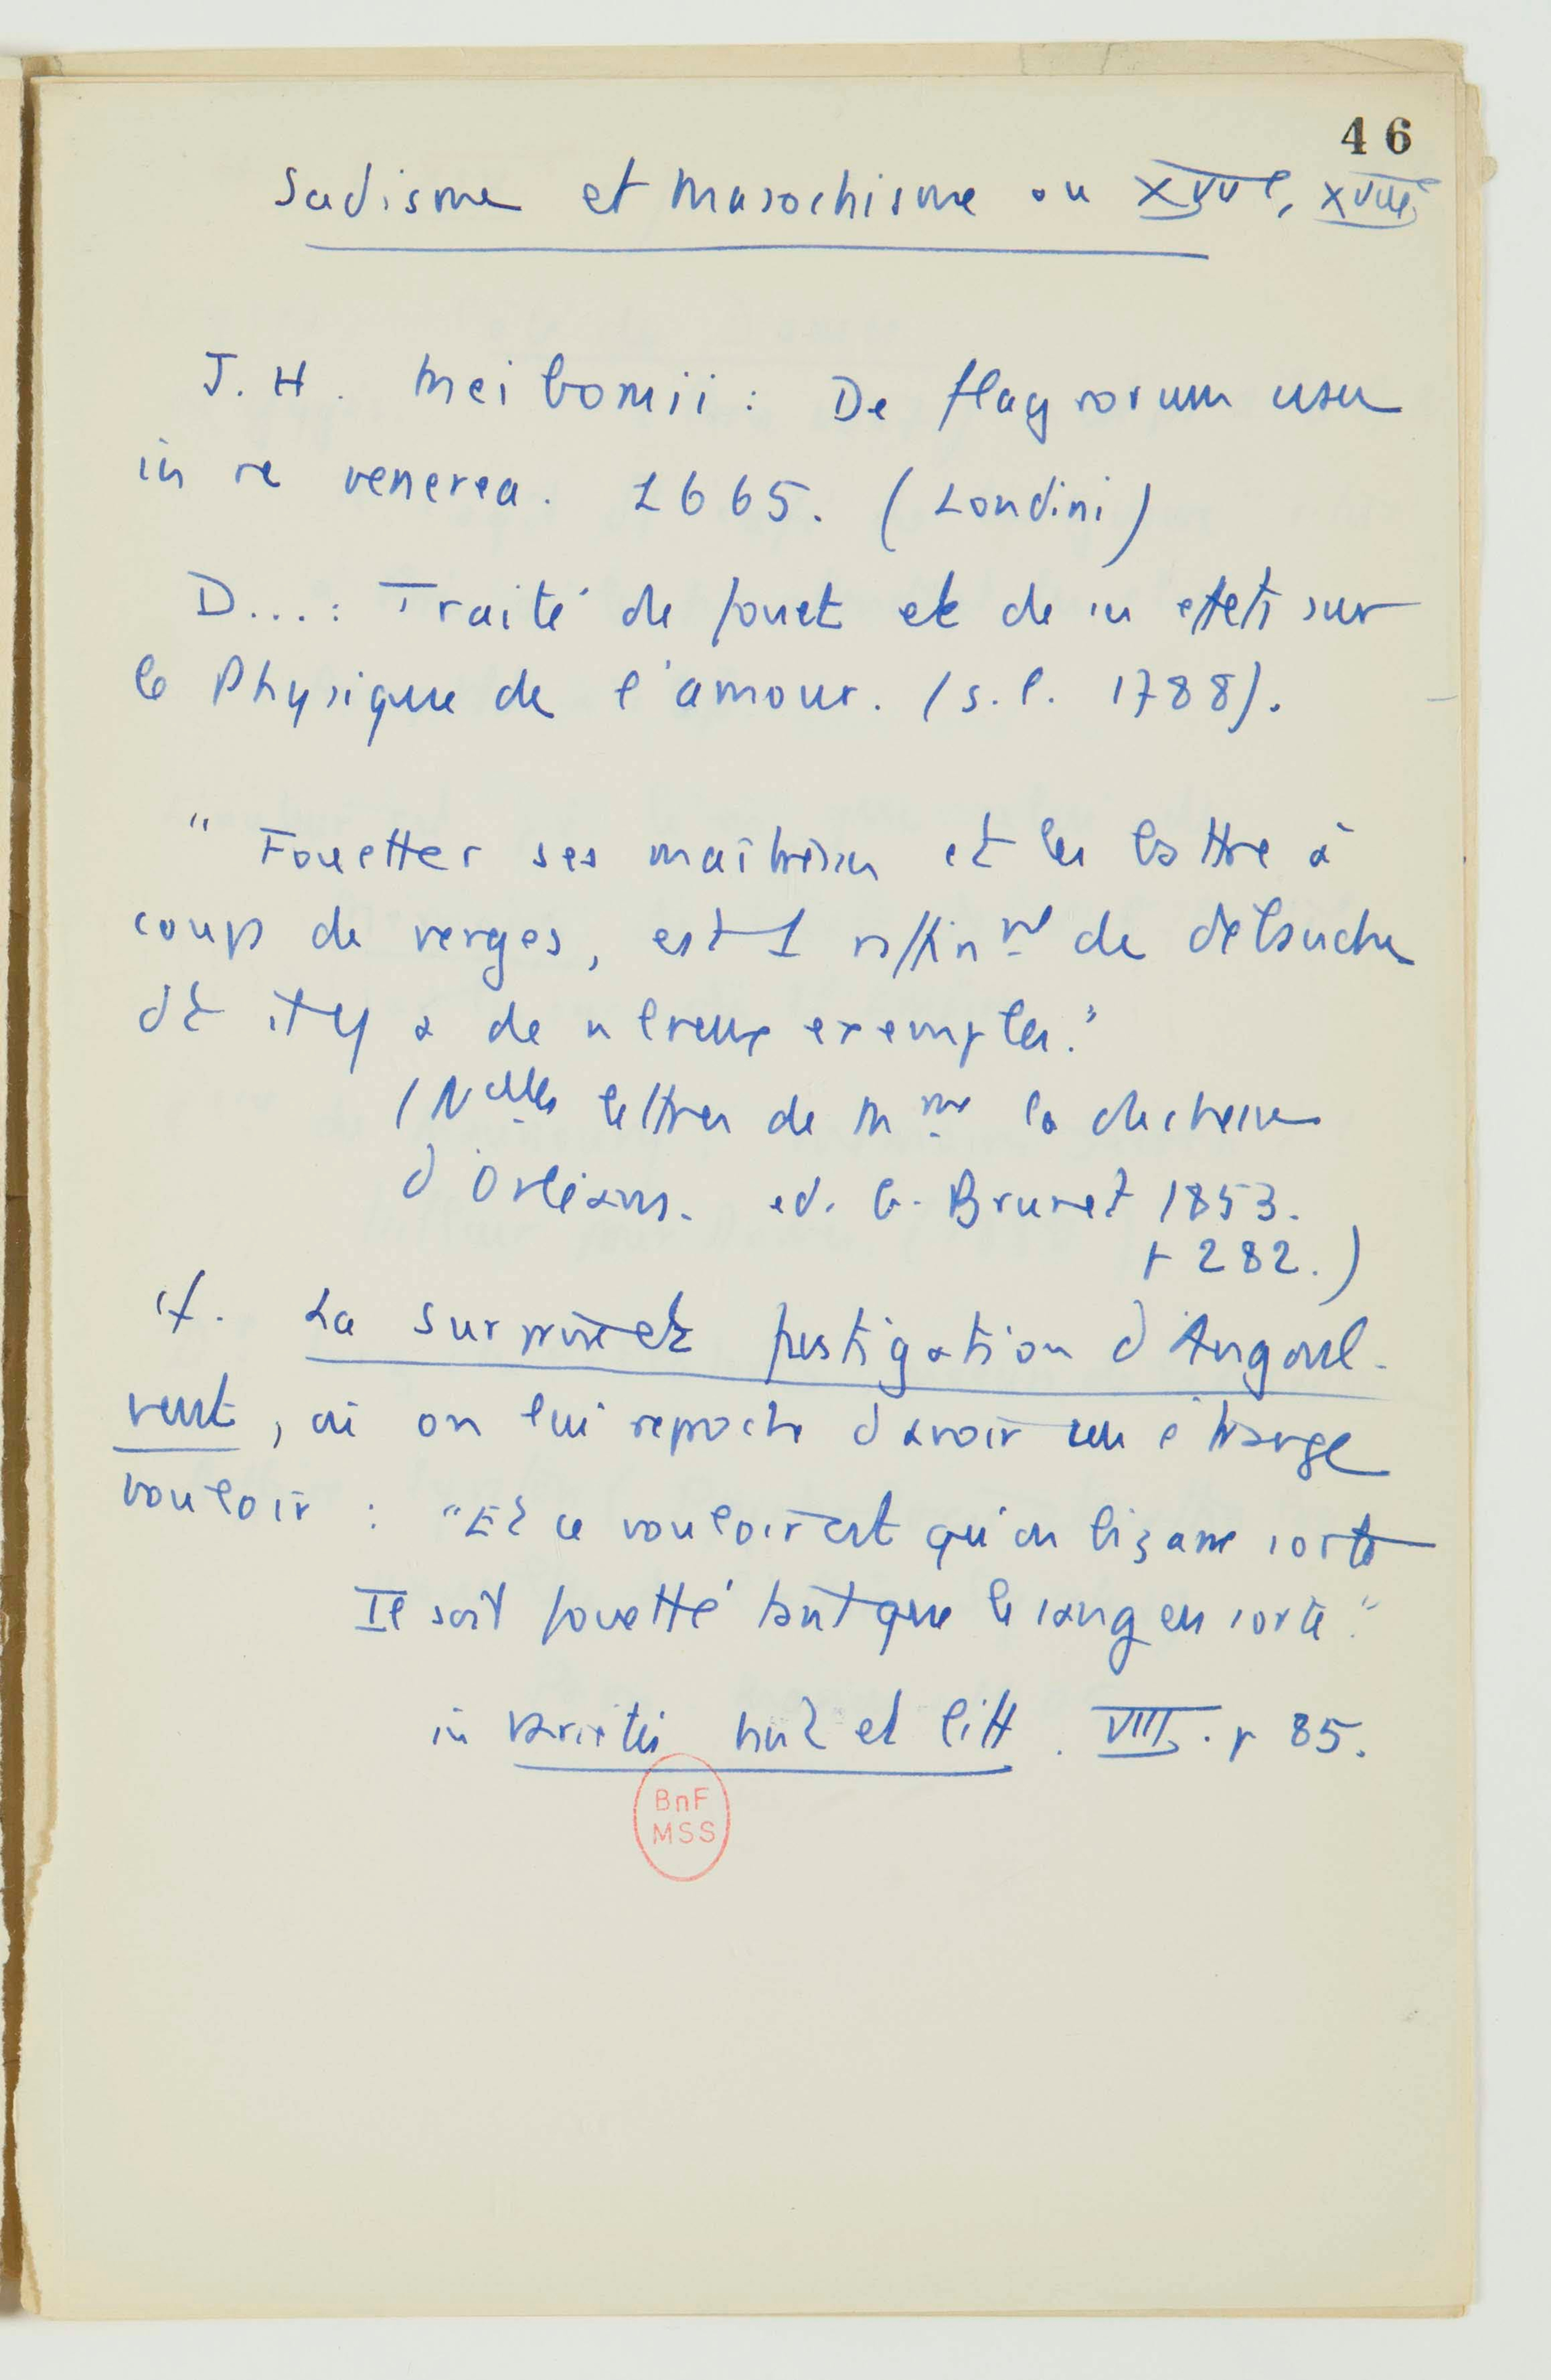 46
Sadisme et Masochisme au XVIIe, XVIIIe
J. H. Meibomii : De flagrorum usu
in re venerea. 1665. (Londini)
D...: Traité de fouet et de ses effets sur
le Physique de l'amour. (s.l. 1788).
" Fouetter ses maîtresses et les battre à
coups de verges, est 1 raffinnt de débauche
dt il y a de nbreux exemples."
(Nelles lettres de Mme la duchesse
d'Orléans. ed. G. Brunet 1853.
p 282.)
cf. La surprise et fustigation d'Angoul-
vent, où on lui reproche d'avoir un étrange
vouloir : "Et ce vouloir est qu'en bizarre sorte
Il soit fouetté tant que le sang en sorte."
in Variétés hist et litt. VIII. p 85.
BnF
MSS